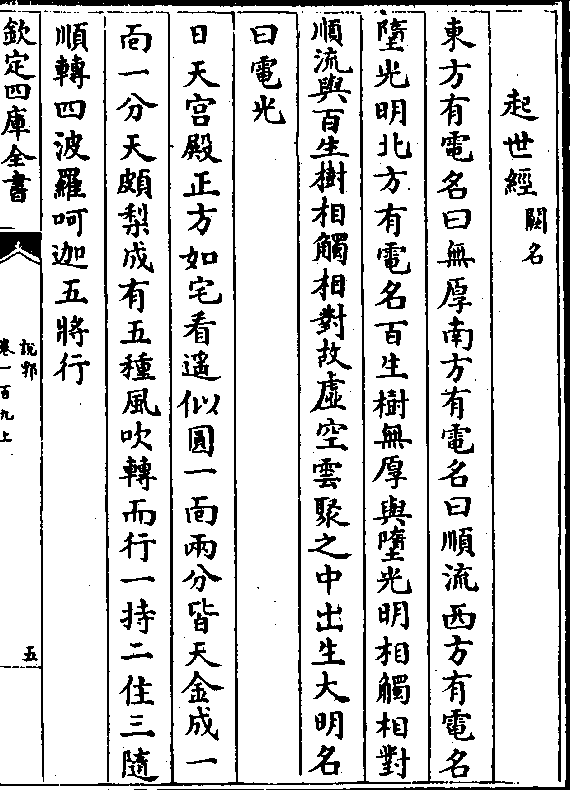 起世經闕名
東方有電名曰無厚南方有電名曰順流西方有電名
墮光明北方有電名百生樹無厚與墮光明相觸相對
順流與百生樹相觸相對故虛空雲聚之中出生大明名
曰電光
日天宮殿正方如宅看遥似圓一面兩分皆天金成一
面一分天頗梨成有五種風吹轉而行一持二住三隨
順轉四波羅呵迦五將行
欽定四庫全書
說郛
卷一百九上
五